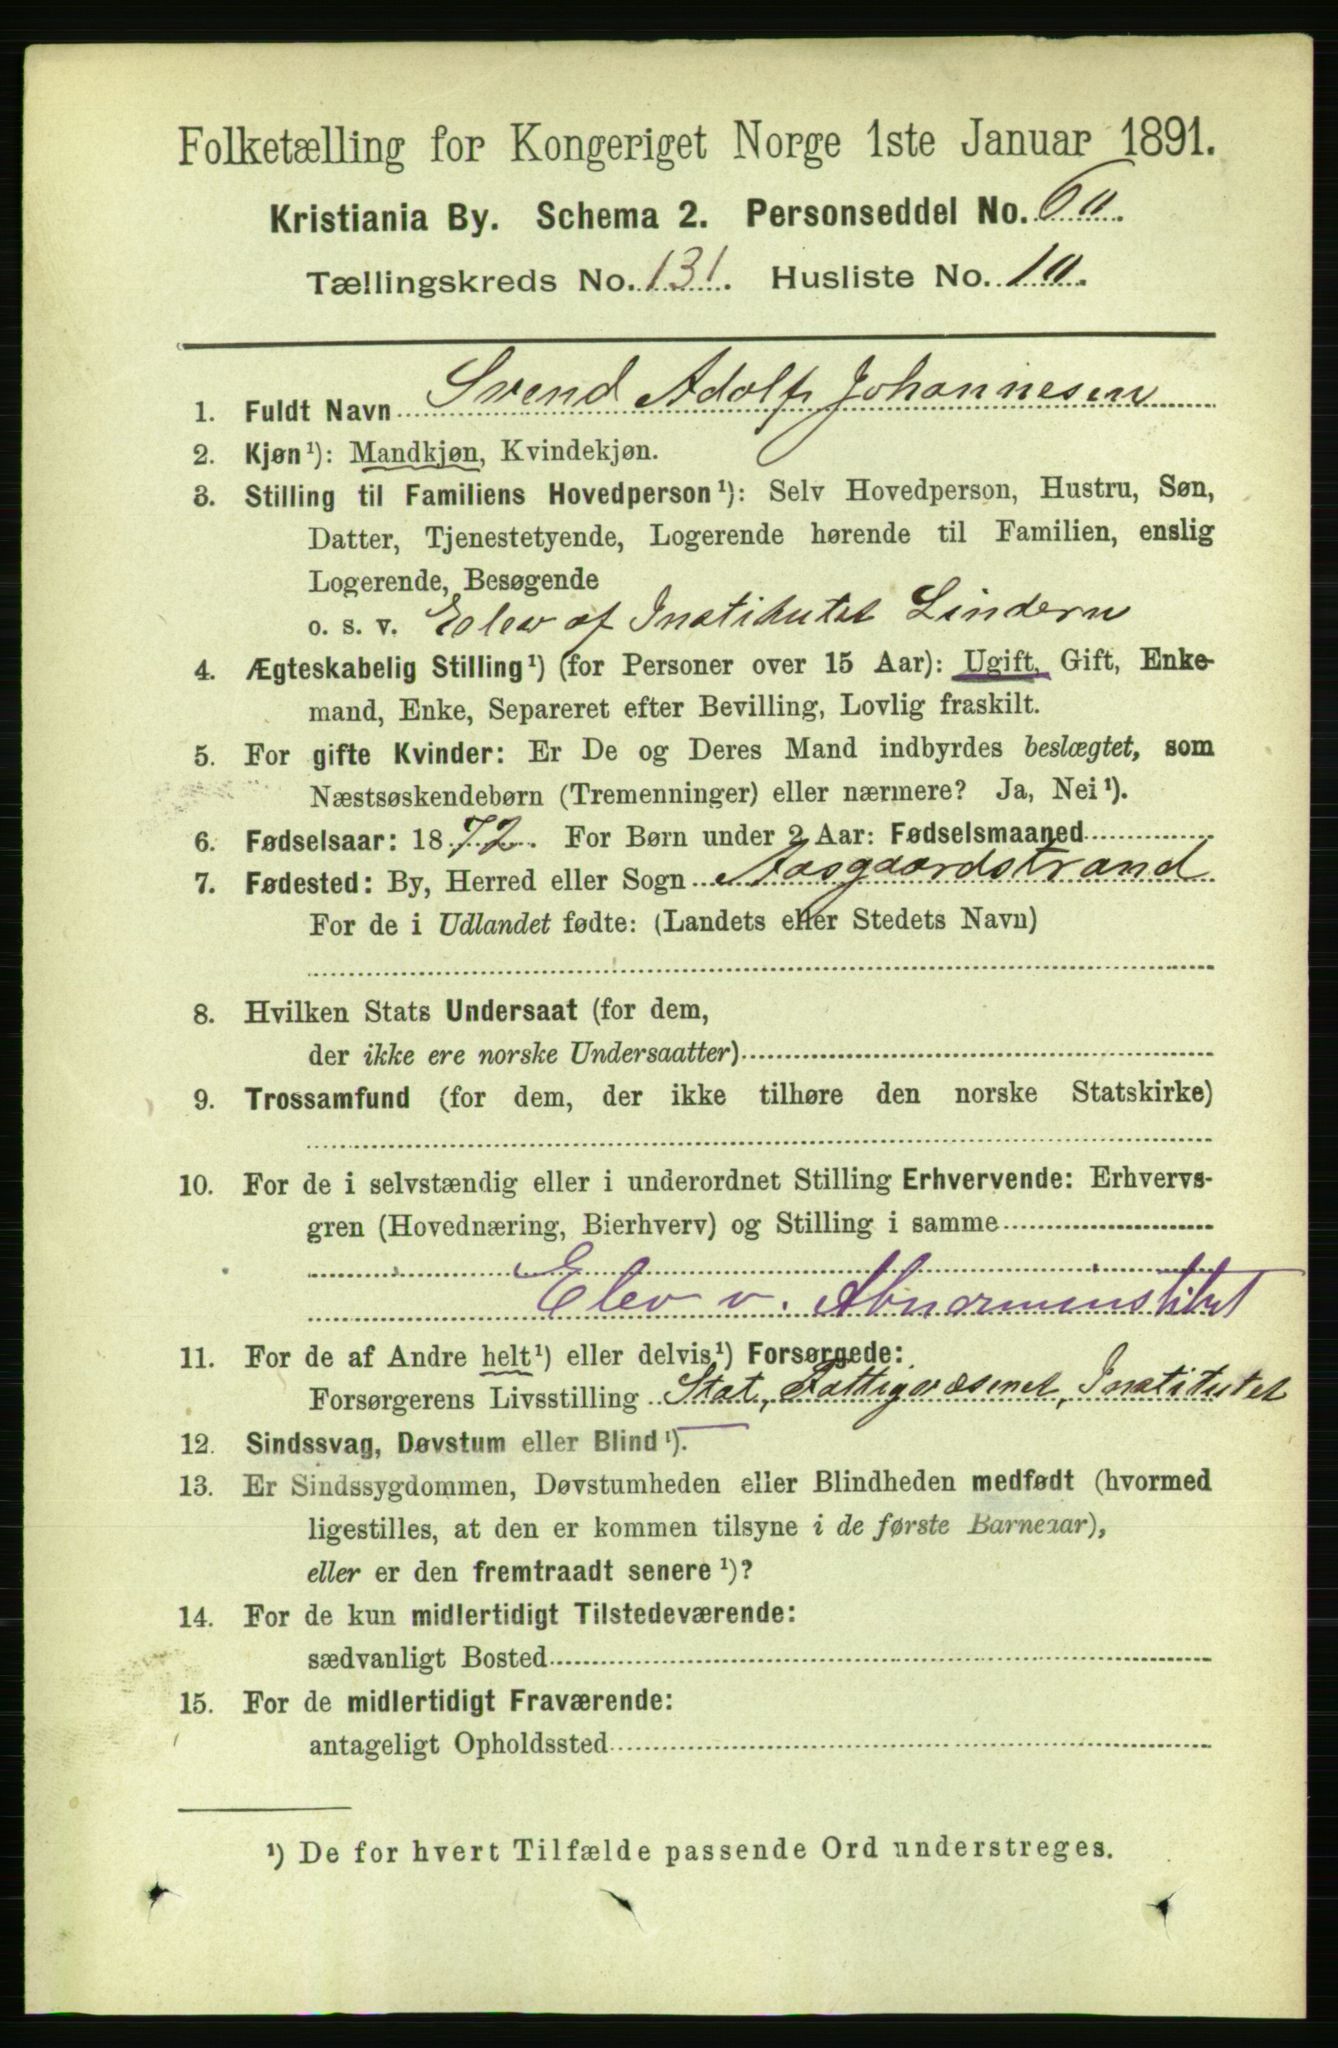 Folketælling for Kongeriget Norge 1ste Januar 1891.
Kristiania By. Schema 2. Personseddel No. 60.
Tællingskreds No. 131. Husliste No. 10.
1. Fuldt Navn Svend Adolf Johannesen
2. Kjøn¹): Mandkjøn, Kvindekjøn.
3. Stilling til Familiens Hovedperson¹): Selv Hovedperson, Hustru, Søn,
Datter, Tjenestetyende, Logerende hørende til Familien, enslig
Logerende, Besøgende
o. s. v. Elev af Institutet Lindern
4. Ægteskabelig Stilling¹) (for Personer over 15 Aar): Ugift, Gift, Enke-
mand, Enke, Separeret efter Bevilling, Lovlig fraskilt.
5. For gifte Kvinder: Er De og Deres Mand indbyrdes beslægtet, som
Næstsøskendebørn (Tremenninger) eller nærmere? Ja, Nei¹).
6. Fødselsaar: 1872. For Børn under 2 Aar: Fødselsmaaned
7. Fødested: By, Herred eller Sogn Aasgaardstrand
For de i Udlandet fødte: (Landets eller Stedets Navn)
8. Hvilken Stats Undersaat (for dem,
der ikke ere norske Undersaatter)
9. Trossamfund (for dem, der ikke tilhøre den norske Statskirke)
10. For de i selvstændig eller i underordnet Stilling Erhvervende: Erhvervs-
gren (Hovednæring, Bierhverv) og Stilling i samme
Elev v. Abnorminstitut
11. For de af Andre helt¹) eller delvis¹) Forsørgede:
Forsørgerens Livsstilling Stat, Fattigvæsenet, Institutet
12. Sindssvag, Døvstum eller Blind¹).
13. Er Sindssygdommen, Døvstumheden eller Blindheden medfødt (hvormed
ligestilles, at den er kommen tilsyne i de første Barneaar),
eller er den fremtraadt senere¹)?
14. For de kun midlertidigt Tilstedeværende:
sædvanligt Bosted
15. For de midlertidigt Fraværende:
antageligt Opholdssted
¹) De for hvert Tilfælde passende Ord understreges.